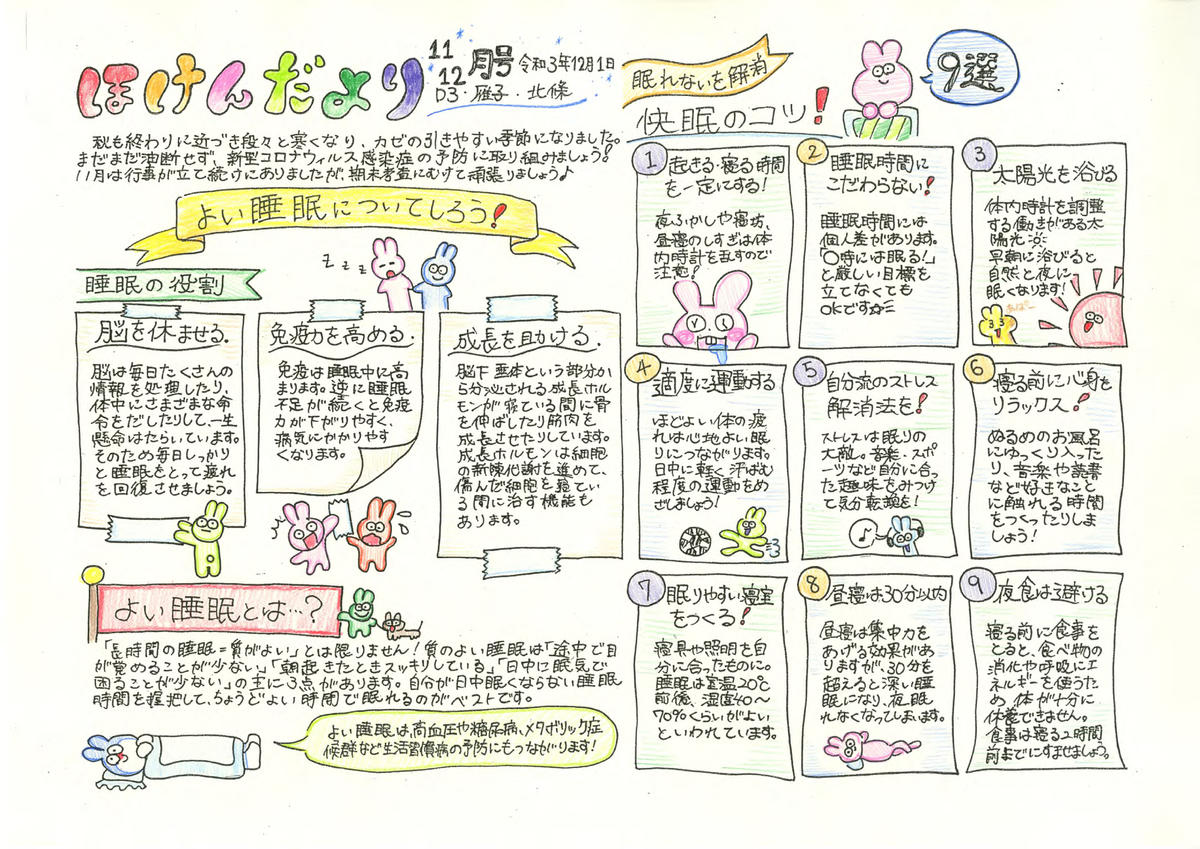 ほけんだより
11
12
月号
令和3年12月1日
D3・雁子・北條
秋も終わりに近づき段々と寒くなり、カゼの引きやすい季節になりました。
まだまだ油断せず、新型コロナウィルス感染症の予防に取り組みましょう!
11月は行事が立て続けにありましたが、期末考査にむけて頑張りましょう♪
よい睡眠についてしろう!
zzz
睡眠の役割
脳を休ませる.
脳は毎日たくさんの
情報を処理したり、
体中にさまざまな命
令をだしたりして、一生
懸命はたらいています。
そのため毎日しっかり
と睡眠をとって疲れ
を回復させましょう。
免疫力を高める.
免疫は睡眠中に高
まります。逆に睡眠
不足が続くと免疫
力が下がりやすく、
病気にかかりやす
くなります。
成長を助ける.
脳下垂体という部分か
ら分泌される成長ホル
モンが寝ている間に骨
を伸ばしたり筋肉を
成長させたりしています。
成長ホルモンは細胞
の新陳代謝を進めて、
傷んだ細胞を寝てい
る間に治す機能も
あります。
よい睡眠とは…?
「長時間の睡眠=質がよい」とは限りません!質のよい睡眠は「途中で目
が覚めることが少ない」「朝起きたときスッキリしている」「日中に眠気で
困ることが少ない」の主に3点があります。自分が日中眠くならない睡眠
時間を把握して、ちょうどよい時間で眠れるのがベストです。
よい睡眠は、高血圧や糖尿病、メタボリック症
候群など生活習慣病の予防にもつながります!
眠れないを解消
快眠のコツ!
9選
1
起きる・寝る時間
を一定にする!
夜ふかしや寝坊、
昼寝のしすぎは体
内時計を乱すので
注意!
2
睡眠時間に
こだわらない!
睡眠時間には
個人差があります。
「〇時には眠る!」
と厳しい目標を
立てなくても
OKです☆ミ
3
太陽光を浴びる
体内時計を調整
する働きがある太
陽光は
早朝に浴びると
自然と夜に
眠くなります!
4
適度に運動する
ほどよい体の疲
れは心地よい眠
りにつながります。
日中に軽く汗ばむ
程度の運動をめ
ざしましょう!
5
自分流のストレス
解消法を!
ストレスは眠りの
大敵。音楽・スポ
ーツなど自分に合っ
た趣味をみつけ
て気分転換を!
6
寝る前に心身を
リラックス!
ぬるめのお風呂
にゆっくり入った
り、音楽や読書
など好きなこと
に触れる時間
をつくったりしま
しょう!
7
眠りやすい寝室
をつくる!
寝具や照明を自
分に合ったものに。
睡眠は室温20℃
前後、湿度40〜
70%くらいがよい
といわれています。
8
昼寝は30分以内
昼寝は集中力を
あげる効果があ
りますが、30分を
超えると深い睡
眠になり、夜眠
れなくなってしまいます。
9
夜食は避ける
寝る前に食事を
とると、食べ物の
消化や呼吸にエ
ネルギーを使うた
め、体が十分に
休養できません。
食事は寝る2時間
前までにすませましょう。